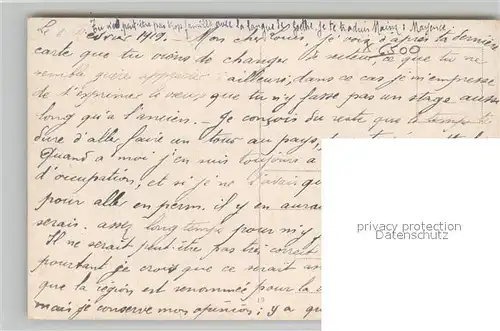 Tu n'es peut-être pas trop familier avec la langue des Goethe, je te traduis Mainz : Mayence.
Le février 1919. Mon cher Louis, je vois d'après ta dernière
X 6500
carte que tu viens de changer de secteur, ce que tu ne
semble guère apprécier ailleurs; dans ce cas je m'empresse
de t'exprimer le vœux que tu n'y fasse pas un stage aussi
long qu'à l'ancien. - Je conçois du reste que le temps te
dure d'aller faire un tour au pays,
Quand à moi j'en suis toujours à
d'occupation, et si je ne
pour aller en perm. il y en aurai
serais. assez longtemps pour m'y
Il ne serait peut-être pas très correct
pourtant je crois que ce serait as
que la région est renommée pour la
mais je conserve mon opinion; y a qu
privacy protection
Datenschutz